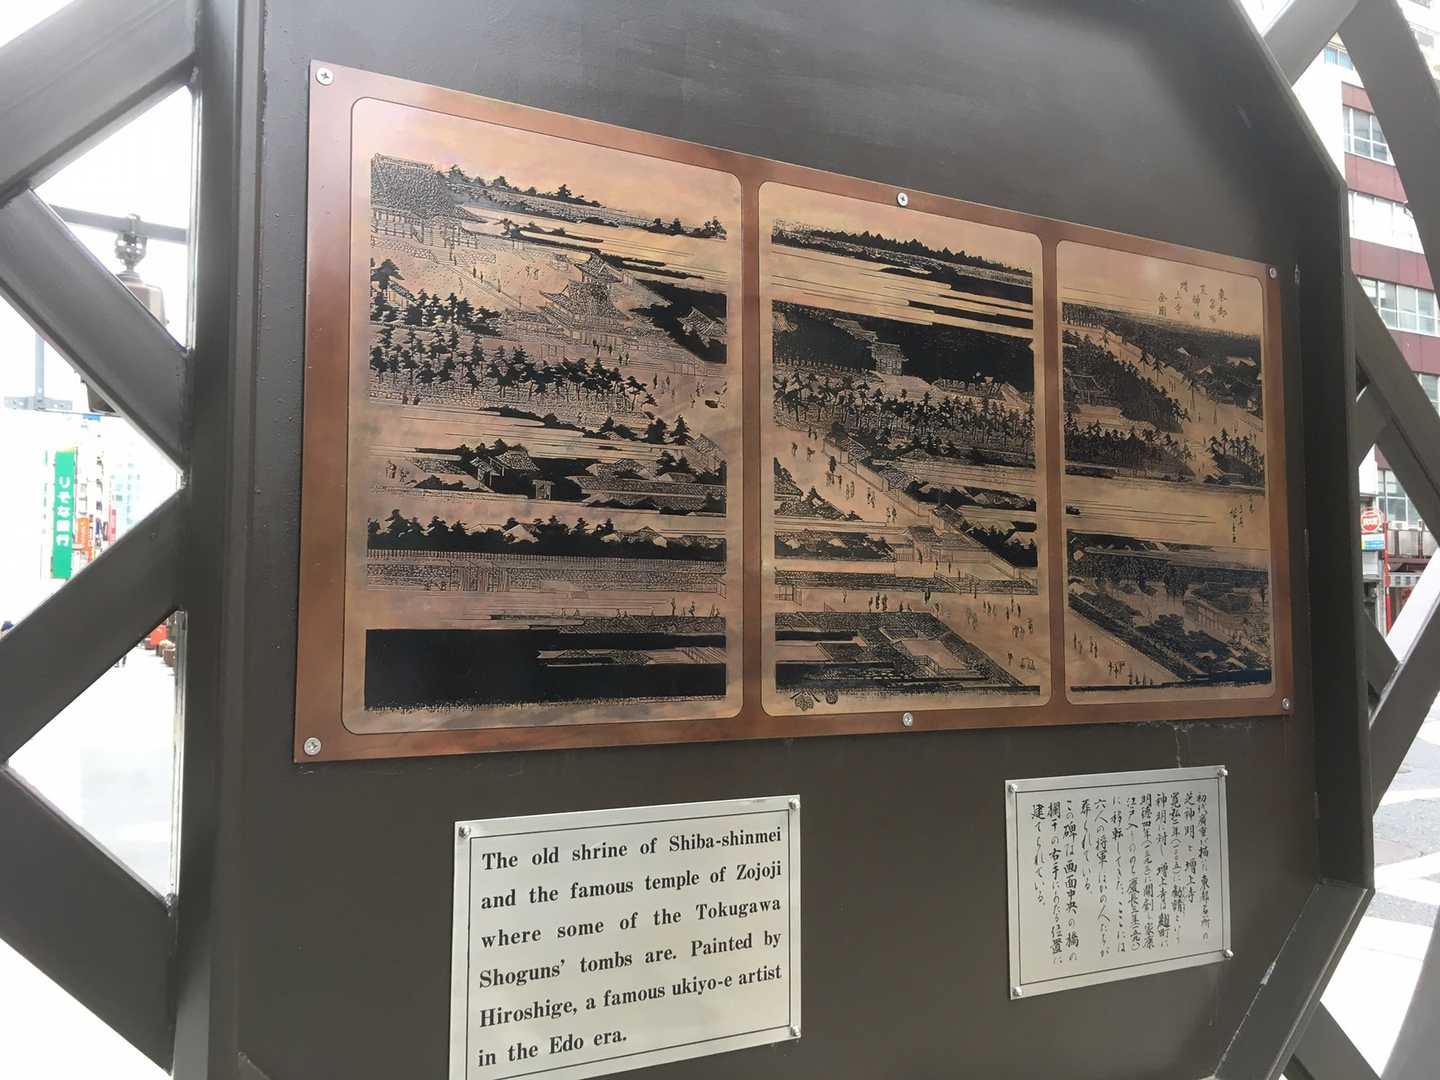 東都
名所
芝神明
増上寺
全図
りそな銀行
The old shrine of Shiba-shinmei
and the famous temple of Zojoji
where some of the Tokugawa
Shoguns' tombs are. Painted by
Hiroshige, a famous ukiyo-e artist
in the Edo era.
初代広重が描いた東都名所の
芝神明と増上寺
寛弘二年(一〇〇五)に勧請という
神明に対し増上寺は麹町に
明徳四年(一三九三)に開創し家康
江戸入りののち慶長三年(一五九八)
に移転してきた。ここには
六人の将軍ほかの人たちが
葬られている。
この碑は画面中央の橋の
欄干の右手にあたる位置に
建てられている。